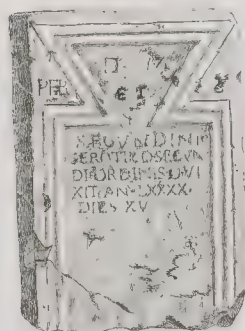 D M
PER ET
SECVNDINI
SEROTINOSECVN
DIORDINISQVI
XIT·AN·LXXXX·
DIES XV